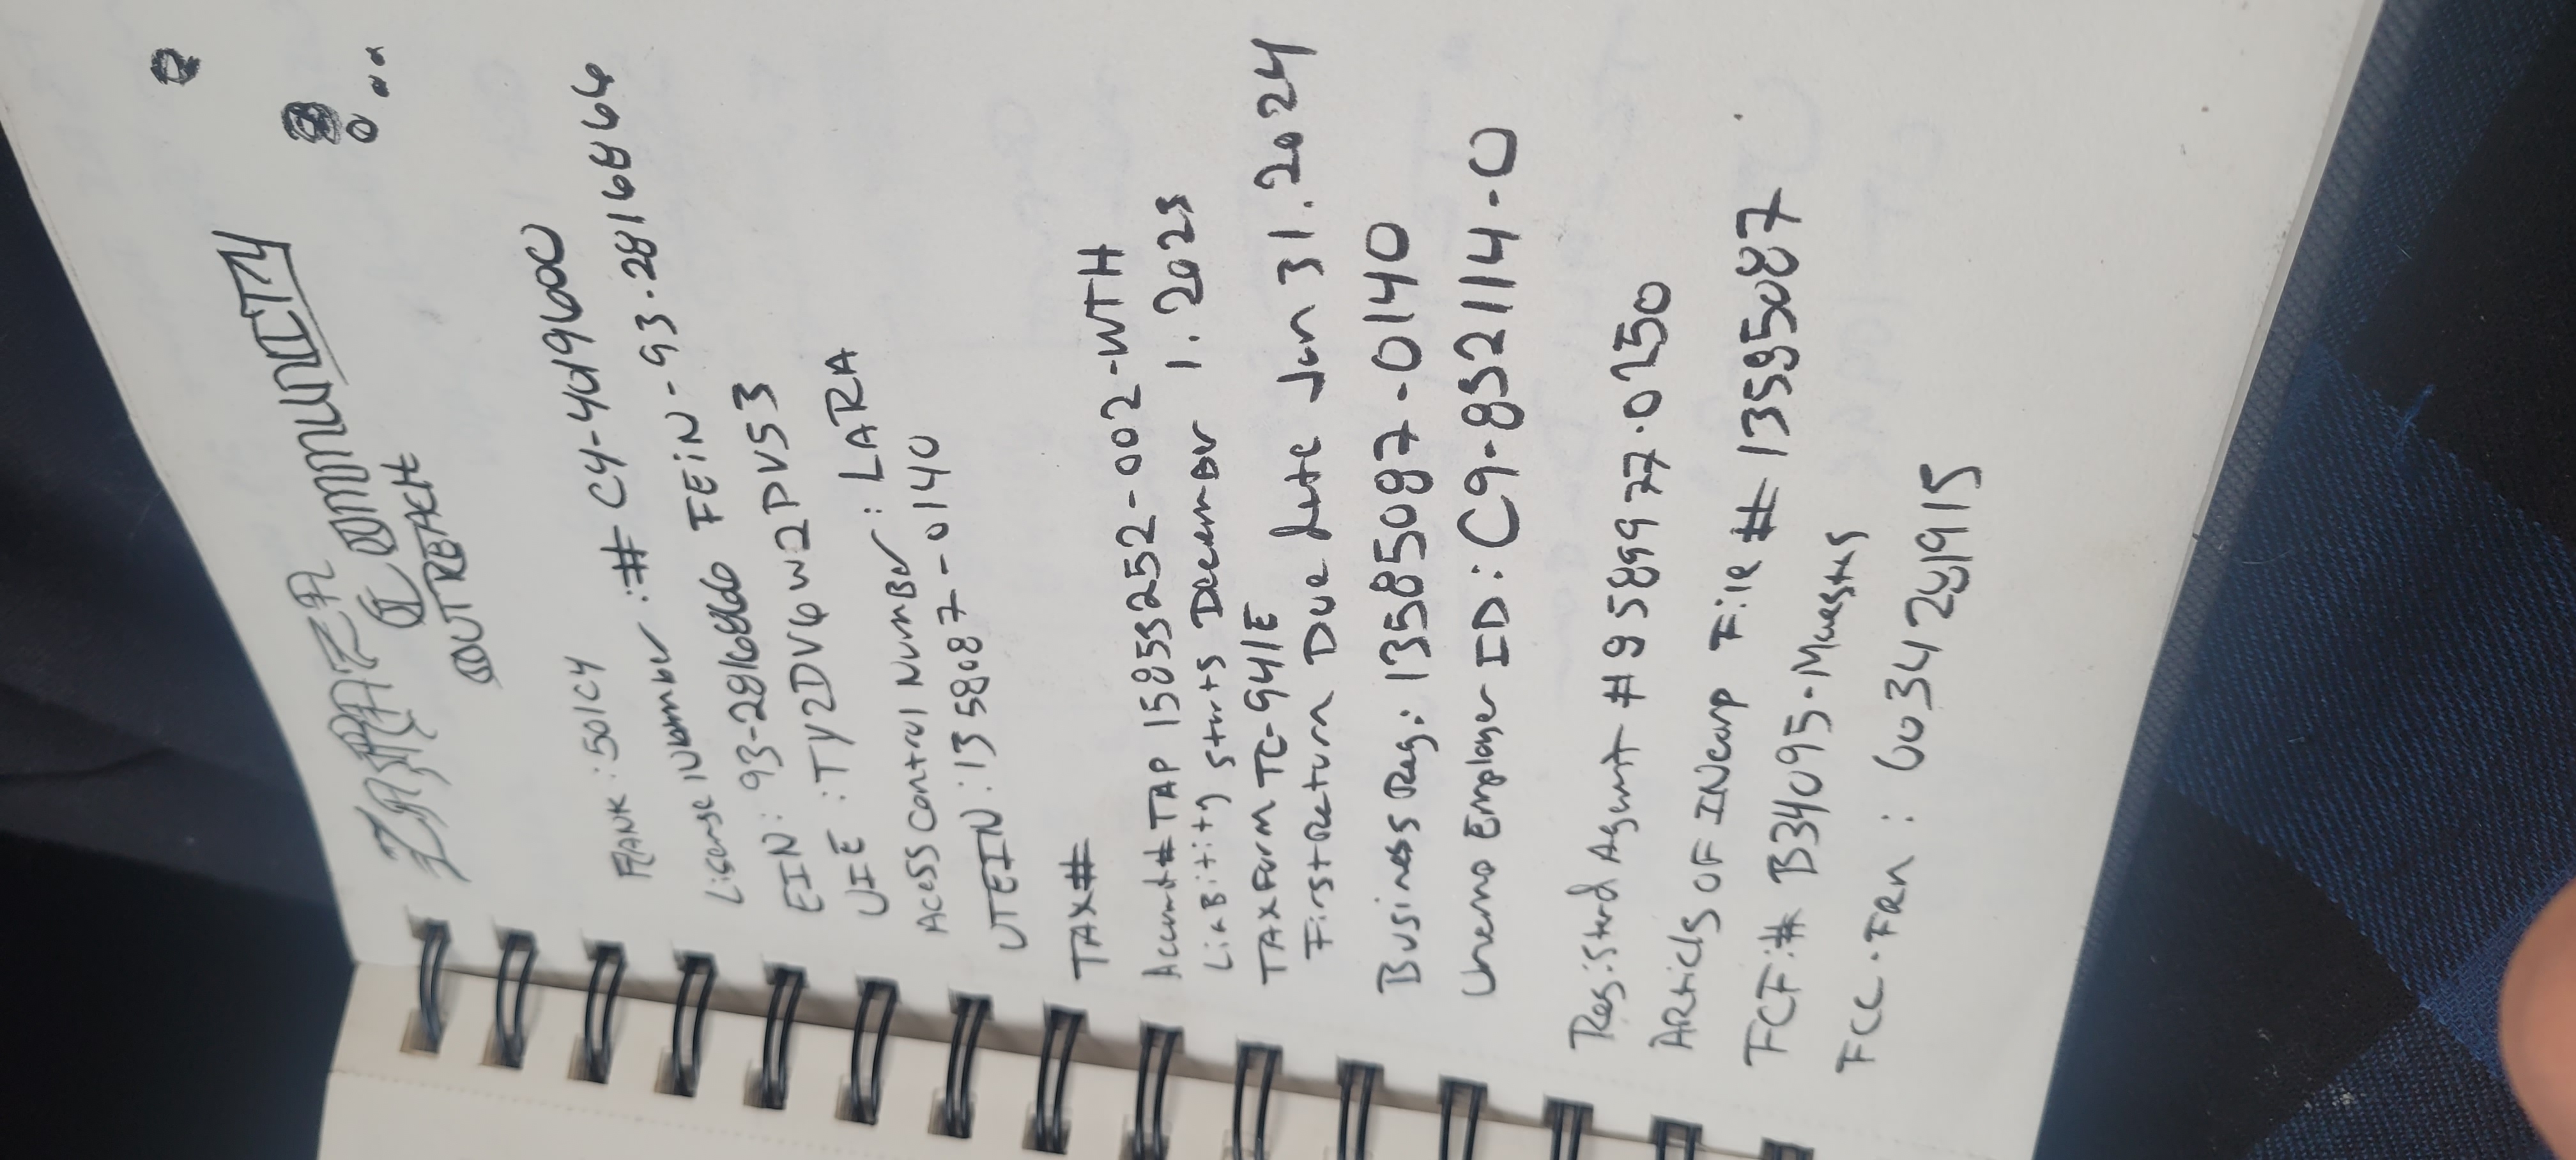 ZARAZA
COMMUNITY
OUTREACH
RANK: 501C4
License Number: # C4-4019600
EIN: 93-2816866 FEiN-93-2816866
UIE: TY2DV6W2PVS3
Acess Control Number: LARA
UTEIN: 1358087-0140
TAX#
Account# TAP 15853252-002-WTH
LiaBitity Starts December 1. 2023
TAX Form TC-941E
First Return Due date Jan 31. 2024
Business Reg.: 13585087-0140
Employer ID: C9-852114-0
Registerd Agent # 9589977-0250
Articls OF INcorp File # 13585087
FCF:# B34095-Maestas
FCC-FRN: 0034281915